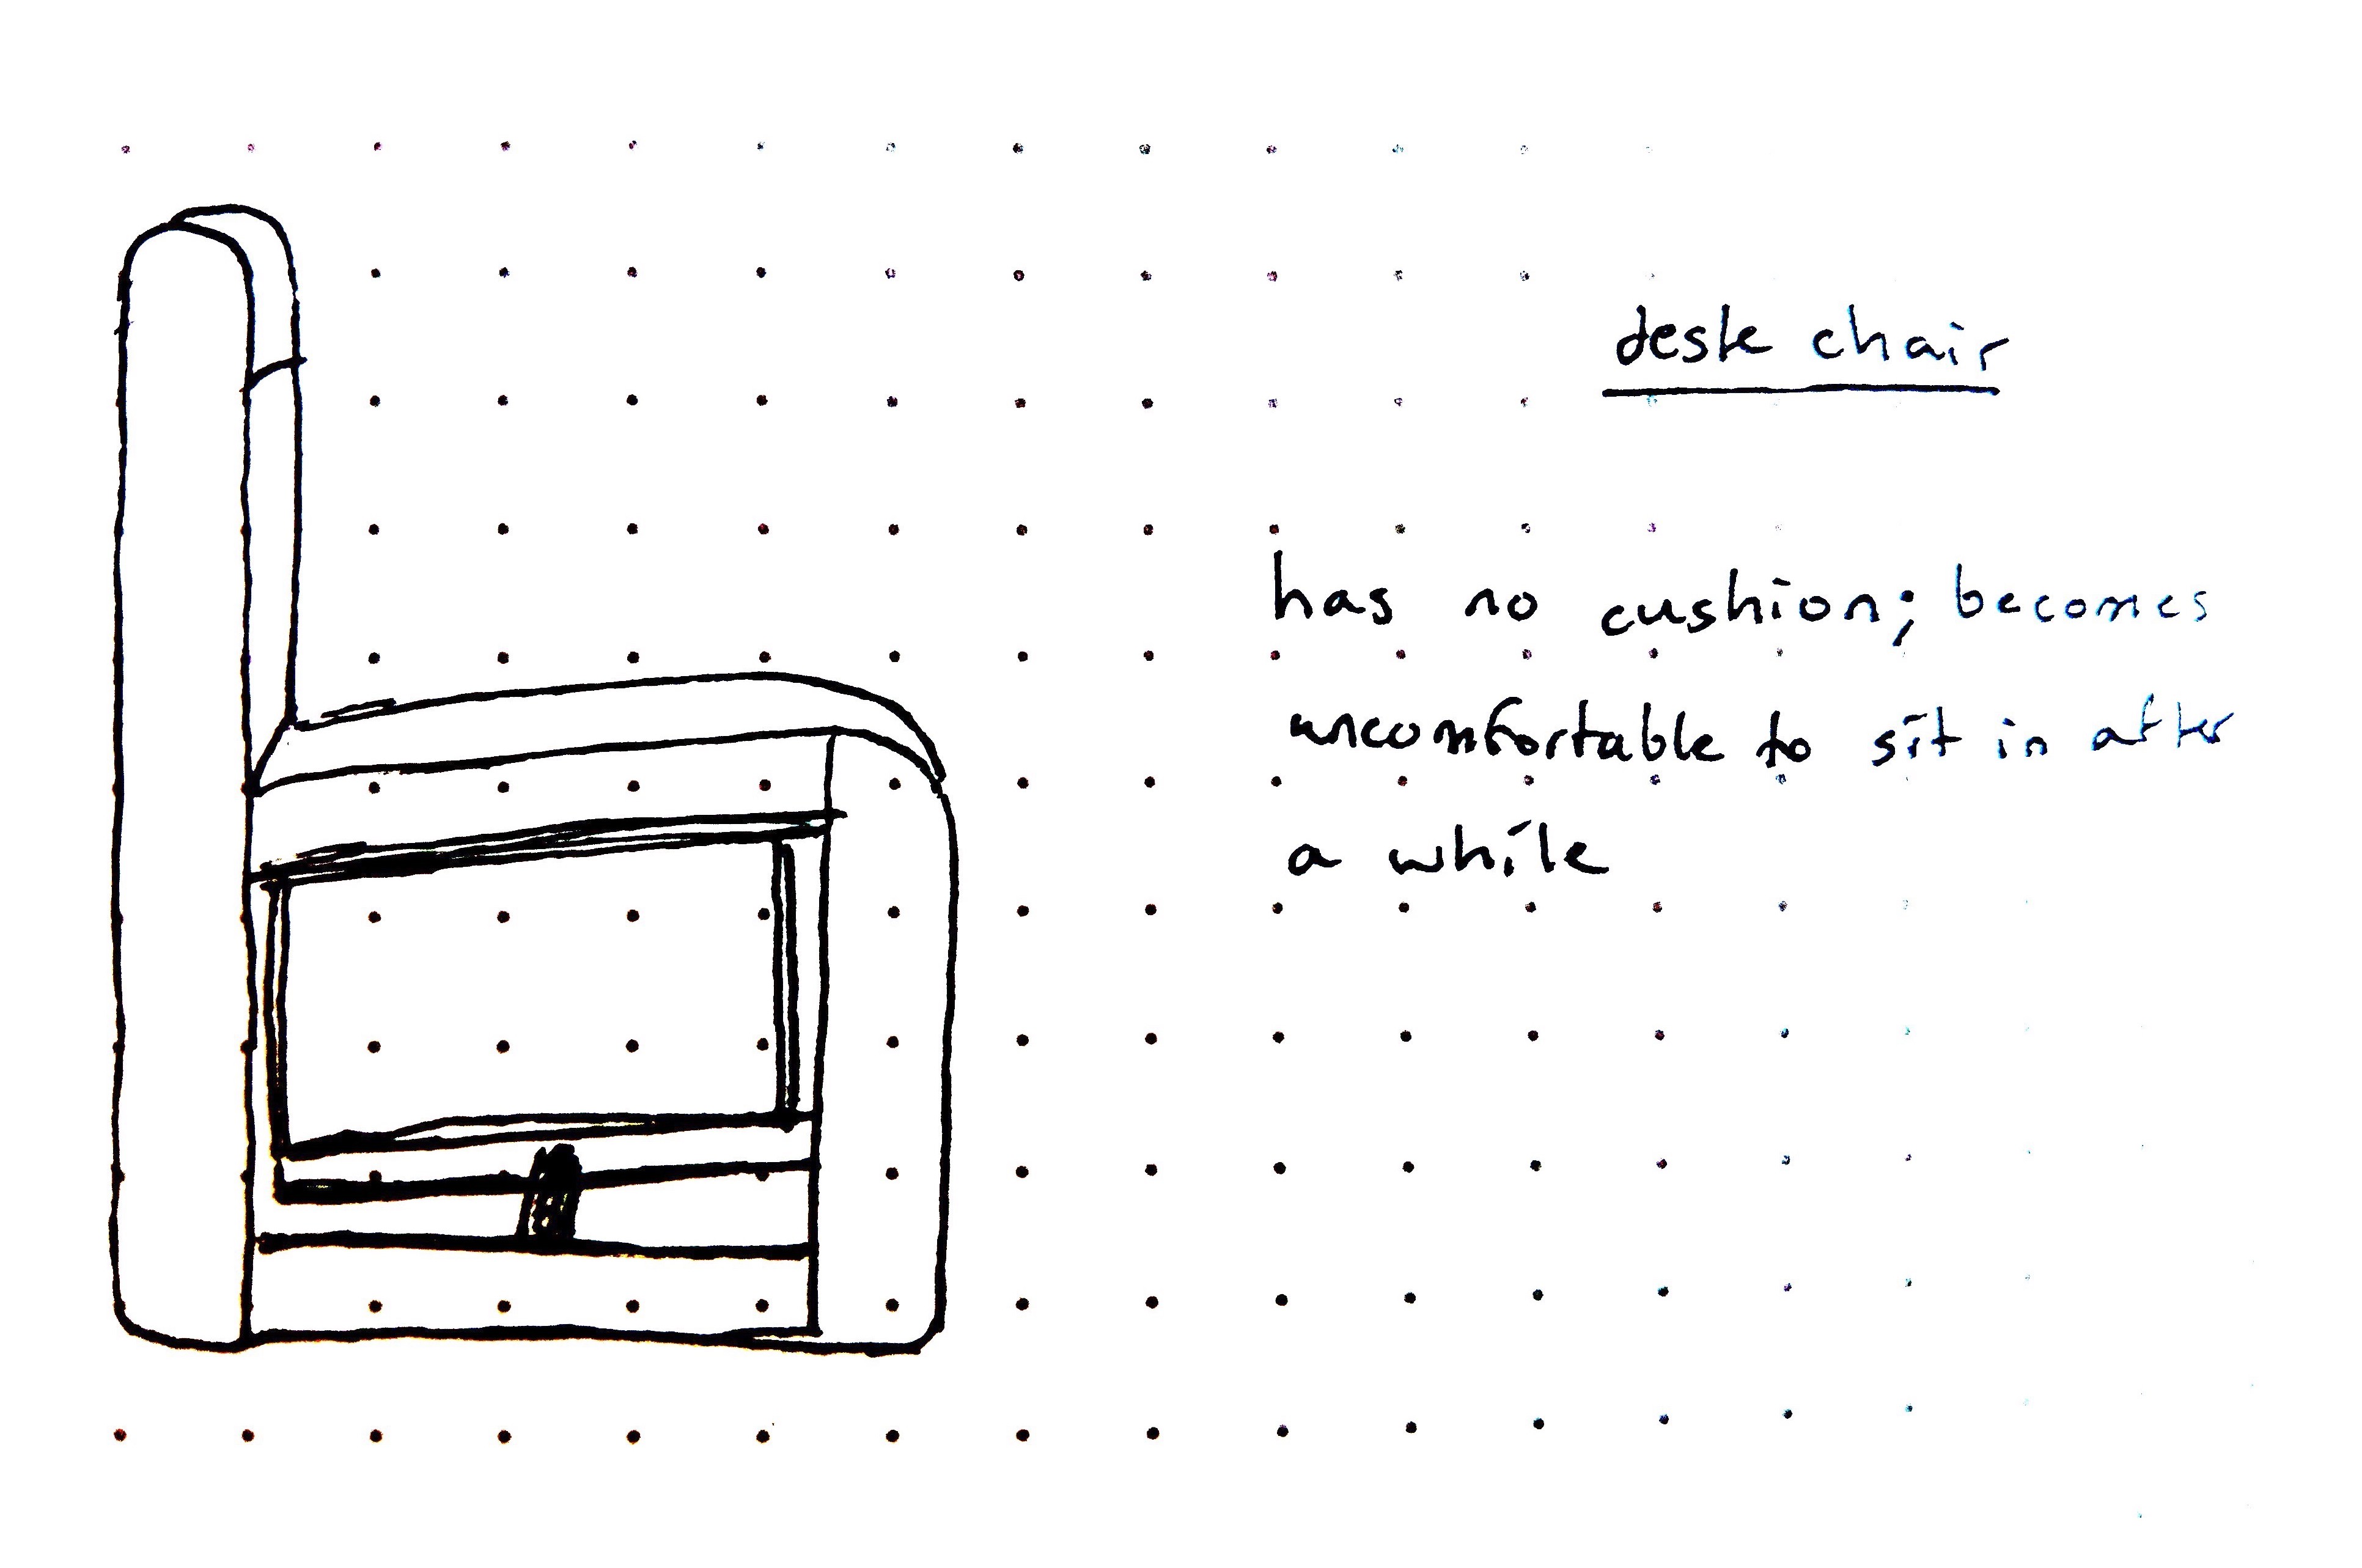 desk chair
has no cushion; becomes
uncomfortable to sit in after
a while